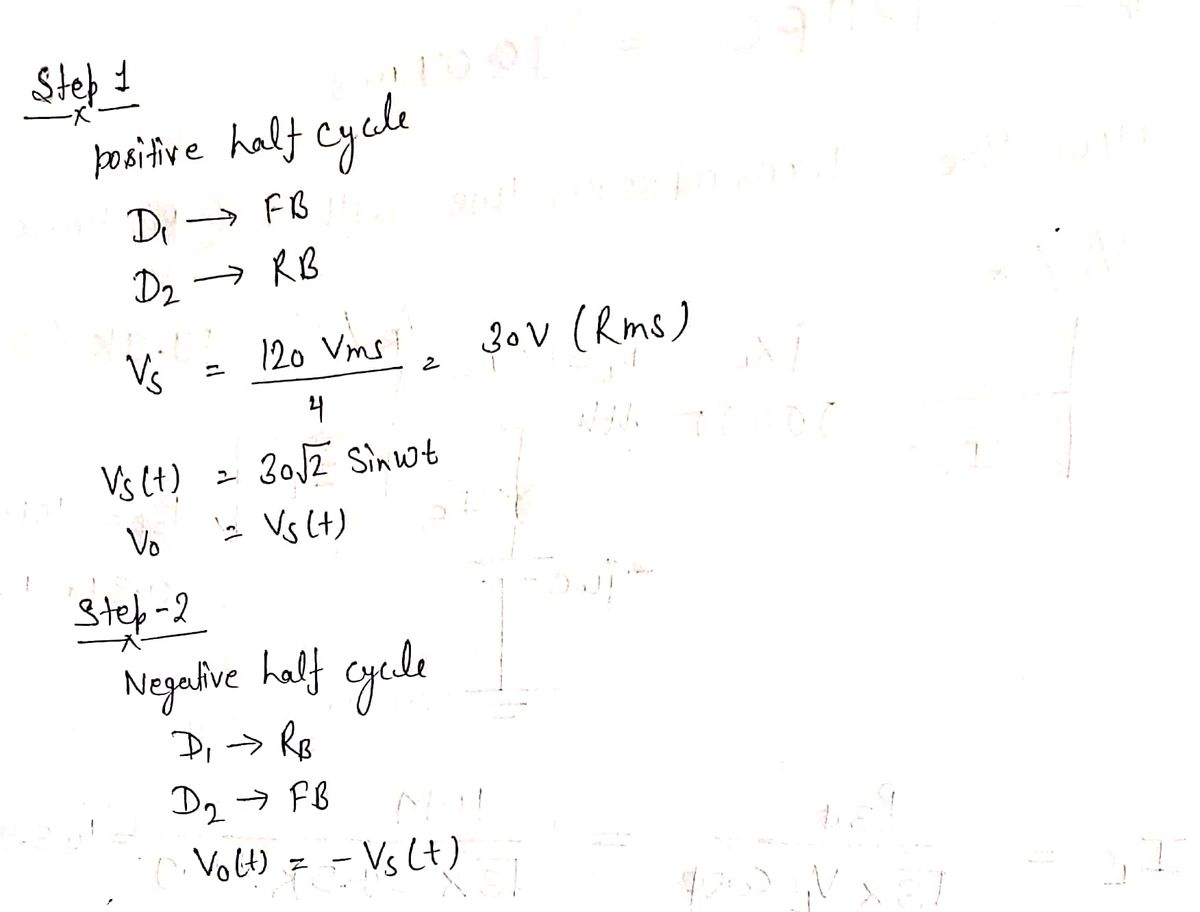 Step 1
positive half cycle
D1 → FB
D2 → RB
Vs = 120 Vms / 4 = 30V (Rms)
Vs(t) = 30√2 Sinwt
Vo = Vs(t)
Step-2
Negative half cycle
D1 → RB
D2 → FB
Vo(t) = - Vs(t)